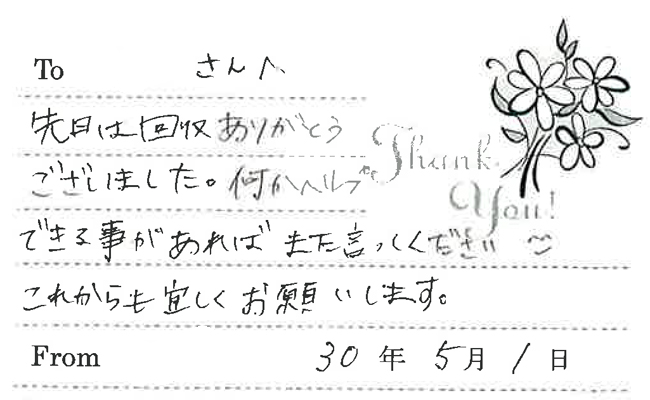 To さんへ
先日は回収ありがとう
ございました。何かヘルプ
できる事があれば また言ってください
これからも宜しくお願いします。
Thank
You!
From 30年 5月 1日